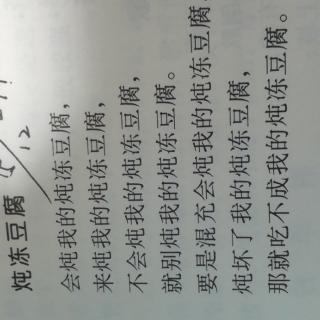 炖冻豆腐
会炖我的炖冻豆腐，
来炖我的炖冻豆腐，
不会炖我的炖冻豆腐，
就别炖我的炖冻豆腐。
要是混充会炖我的炖冻豆腐，
炖坏了我的炖冻豆腐，
那就吃不成我的炖冻豆腐。
12